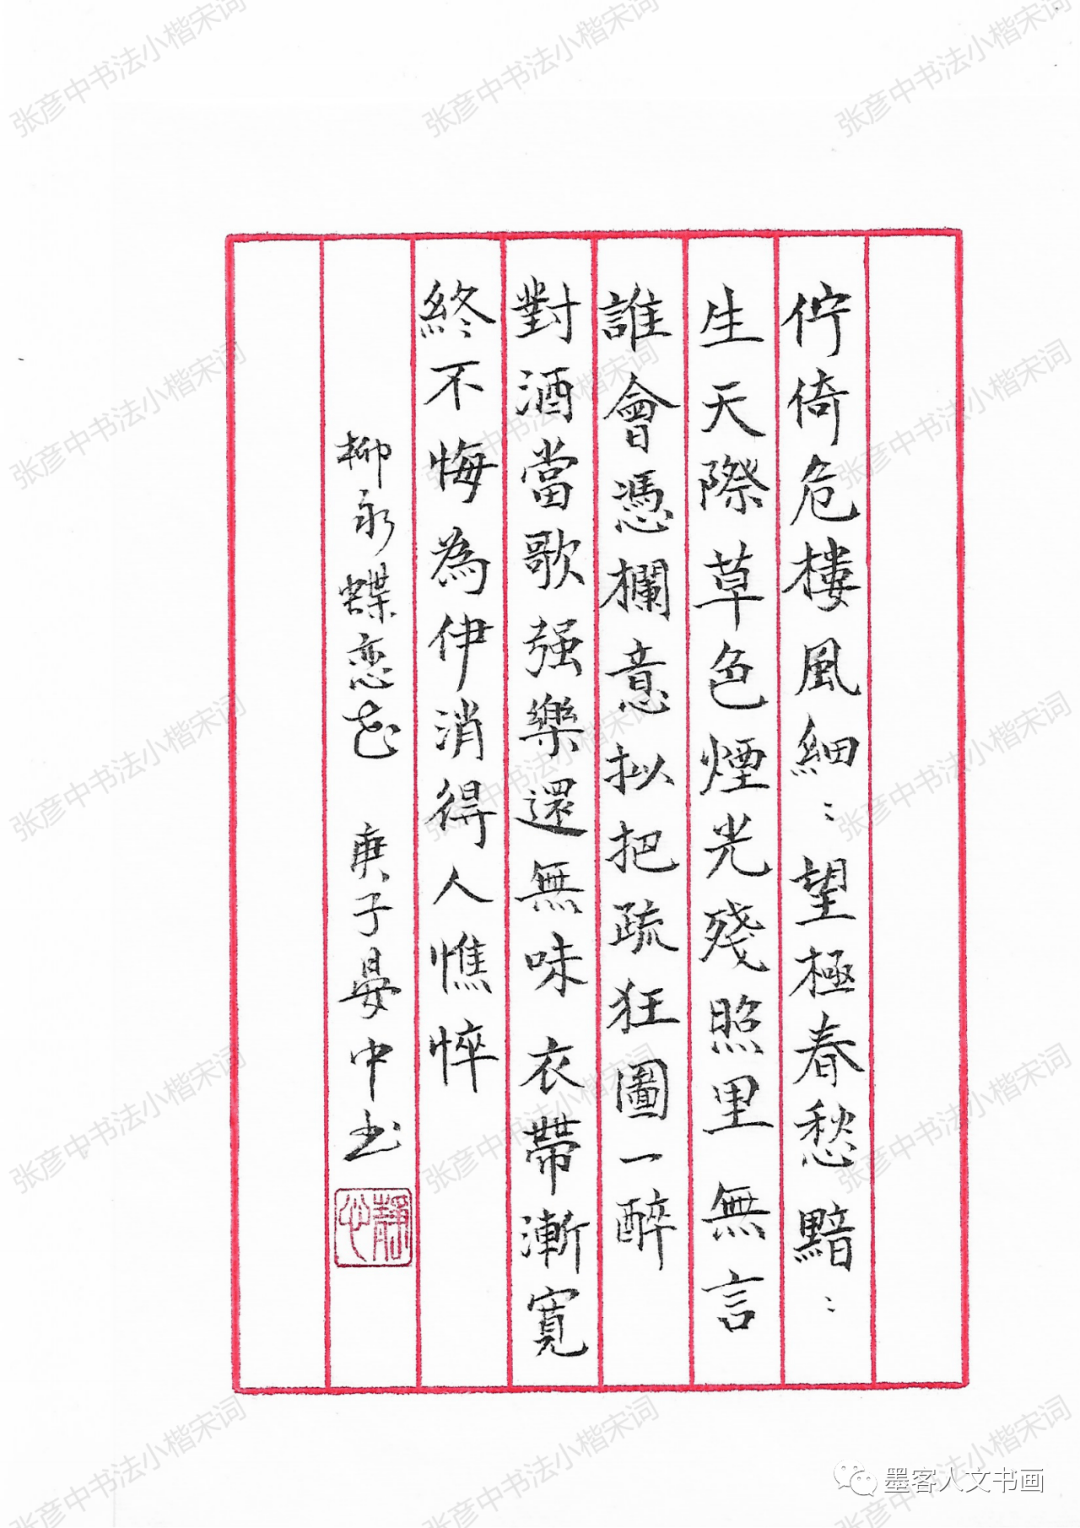 佇倚危樓風細：望極春愁黯：
生天際草色煙光殘照里無言
誰會憑欄意拟把疏狂圖一醉
對酒當歌强樂還無味衣帶漸寬
終不悔為伊消得人憔悴
柳永蝶恋花 庚子晏中书
靜心
墨客人文书画
张彦中书法小楷宋词